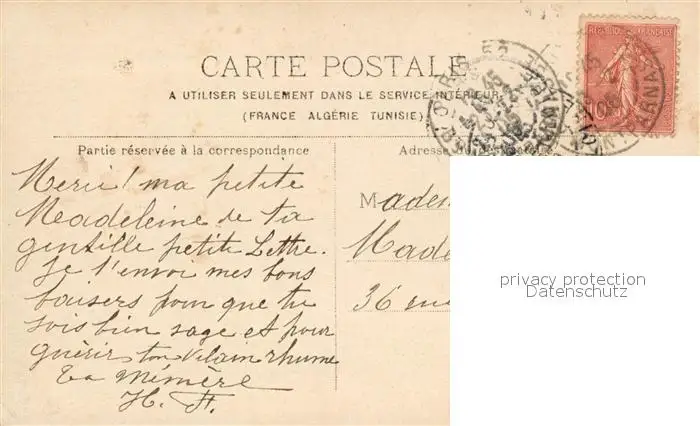 CARTE POSTALE
A UTILISER SEULEMENT DANS LE SERVICE INTÉRIEUR
(FRANCE ALGÉRIE TUNISIE)
Partie réservée à la correspondance
Merci! ma petite
Meadeleine de ta
gentille petite Lettre.
Je t'envoi mes bons
baisers pour que tu
sois bien sage et pour
guèrir ton vilain rhume
Ta mémère
H. F.
Adresse du
Madem
Made
36 rue
REPUBLIQUE FRANÇAISE
10
PARIS
privacy protection
Datenschutz